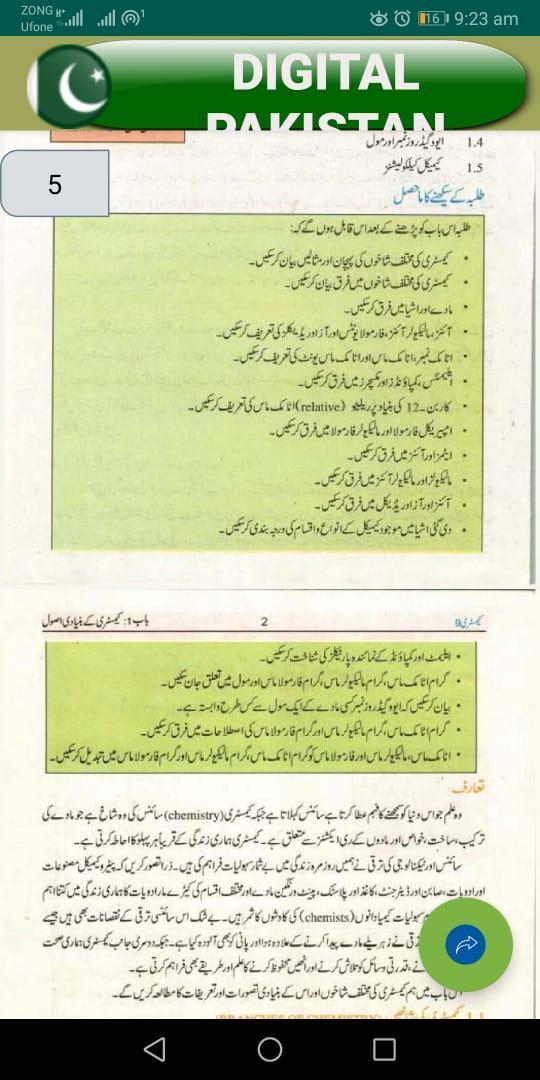 ZONG
Ufone
H+
1
16
9:23 am
DIGITAL
PAKISTAN
5
1.4 ایووگیڈروز نمبر اور مول
1.5 کیمیکل کیلکولیشنز
طلبہ کے سیکھنے کا ماحصل
طلبہ اس باب کو پڑھنے کے بعد اس قابل ہوں گے کہ:
• کیمسٹری کی مختلف شاخوں کی پہچان اور مثالیں بیان کر سکیں۔
• کیمسٹری کی مختلف شاخوں میں فرق بیان کر سکیں۔
• مادے اور اشیا میں فرق کر سکیں۔
• آئنز، مالیکیولر آئنز، فارمولا یونٹس اور آزاد ریڈیکلز کی تعریف کر سکیں۔
• اٹامک نمبر، اٹامک ماس اور اٹامک ماس یونٹ کی تعریف کر سکیں۔
• ایلیمنٹس، کمپاؤنڈز اور مکسچرز میں فرق کر سکیں۔
• کاربن۔12 کی بنیاد پر ریلیٹو (relative) اٹامک ماس کی تعریف کر سکیں۔
• امپیریکل فارمولا اور مالیکیولر فارمولا میں فرق کر سکیں۔
• ایٹمز اور آئنز میں فرق کر سکیں۔
• مالیکیولز اور مالیکیولر آئنز میں فرق کر سکیں۔
• آئنز اور آزاد ریڈیکل میں فرق کر سکیں۔
• دی گئی اشیا میں موجود کیمیکل کے انواع و اقسام کی درجہ بندی کر سکیں۔
کیمسٹری 9
2
باب 1: کیمسٹری کے بنیادی اصول
• ایلیمنٹ اور کمپاؤنڈ کے نمائندہ پارٹیکلز کی شناخت کر سکیں۔
• گرام اٹامک ماس، گرام مالیکیولر ماس، گرام فارمولا ماس اور مول میں تعلق جان سکیں۔
• بیان کر سکیں کہ ایووگیڈروز نمبر کسی مادے کے ایک مول سے کس طرح وابستہ ہے۔
• گرام اٹامک ماس، گرام مالیکیولر ماس اور گرام فارمولا ماس کی اصطلاحات میں فرق کر سکیں۔
• اٹامک ماس، مالیکیولر ماس اور فارمولا ماس کو گرام اٹامک ماس، گرام مالیکیولر ماس اور گرام فارمولا ماس میں تبدیل کر سکیں۔
تعارف
وہ علم جو اس دنیا کو سمجھنے کا فہم عطا کرتا ہے سائنس کہلاتا ہے جبکہ کیمسٹری (chemistry) سائنس کی وہ شاخ ہے جو مادے کی
ترکیب، ساخت، خواص اور مادوں کے ری ایکشنز سے متعلق ہے۔ کیمسٹری ہماری زندگی کے قریباً ہر پہلو کا احاطہ کرتی ہے۔
سائنس اور ٹیکنالوجی کی ترقی نے ہمیں روزمرہ زندگی میں بے شمار سہولیات فراہم کی ہیں۔ ذرا تصور کریں کہ پیٹروکیمیکل مصنوعات
اور ادویات، صابن اور ڈیٹرجنٹ، کاغذ اور پلاسٹک، پینٹ و رنگین مادے اور مختلف اقسام کی کیڑے مار ادویات کا ہماری زندگی میں کتنا اہم
سہولیات کیمیا دانوں (chemists) کی کاوشوں کا ثمر ہیں۔ بے شک اس سائنسی ترقی کے نقصانات بھی ہیں جیسے
ترقی نے زہریلے مادے پیدا کرنے کے علاوہ ہوا اور پانی کو بھی آلودہ کیا ہے۔ جبکہ دوسری جانب کیمسٹری ہماری صحت
نے، قدرتی وسائل کو تلاش کرنے اور انھیں محفوظ کرنے کا علم اور طریقے بھی فراہم کرتی ہے۔
اس باب میں ہم کیمسٹری کی مختلف شاخوں اور اس کے بنیادی تصورات اور تعریفات کا مطالعہ کریں گے۔
1.1 کیمسٹری کی شاخیں (BRANCHES OF CHEMISTRY)